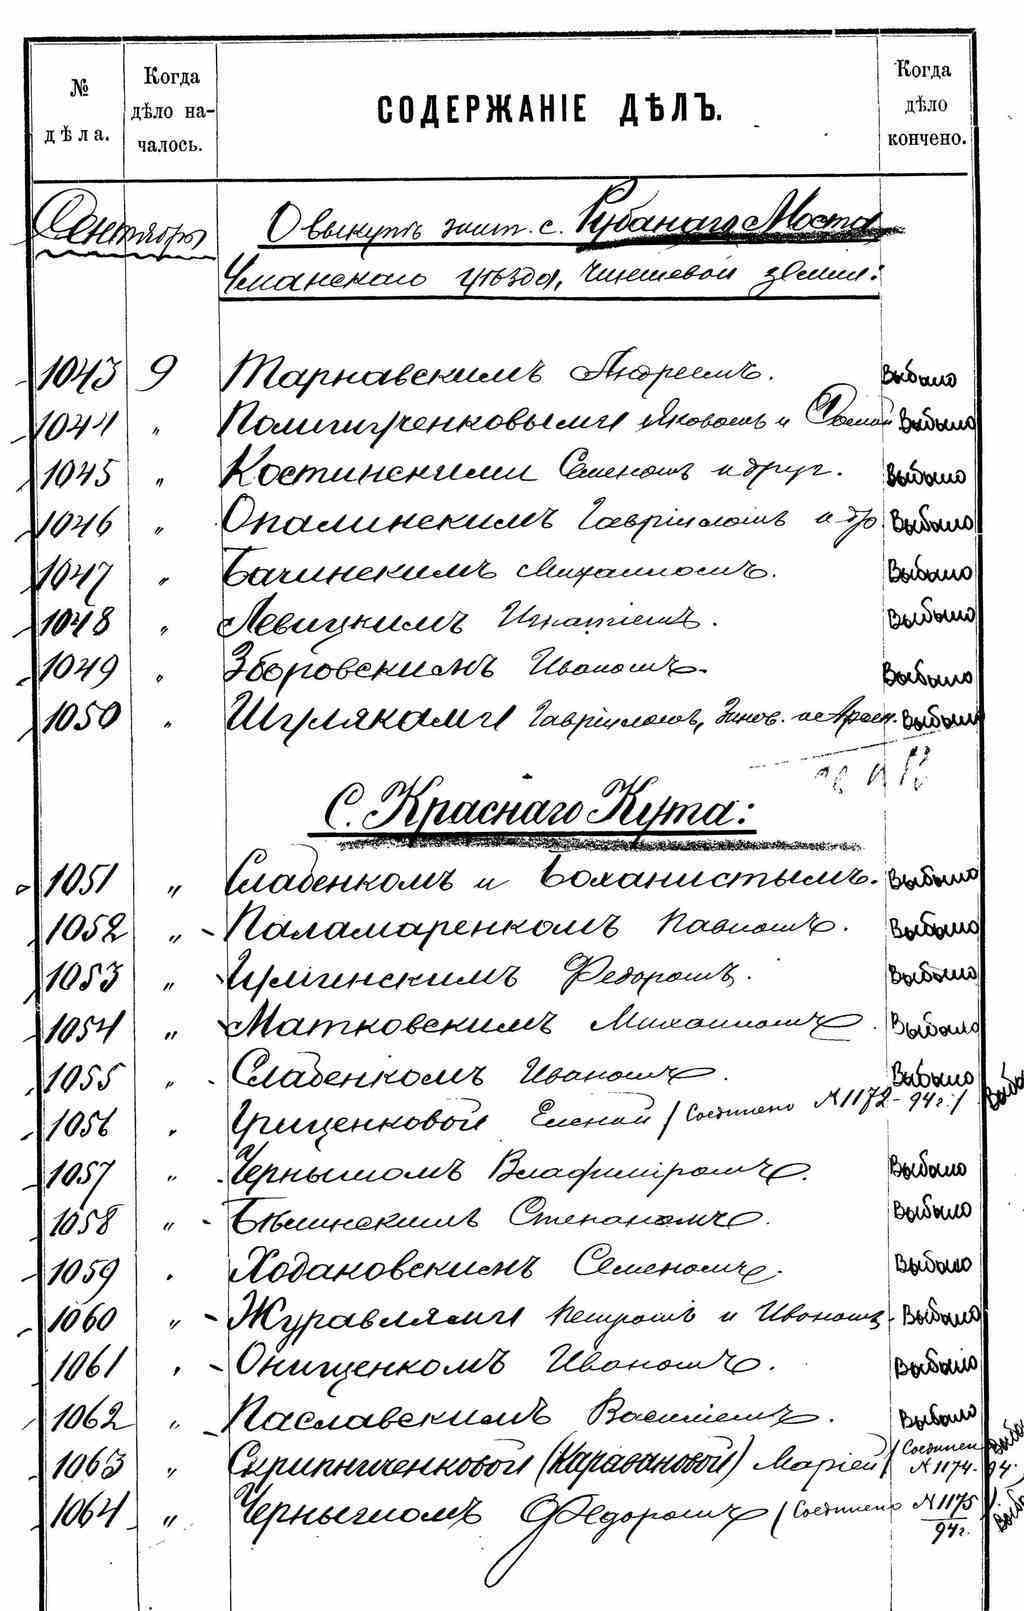 № дѣла.
Когда дѣло началось.
СОДЕРЖАНІЕ ДѢЛЪ.
Когда дѣло кончено.
Сентябрь
О выкупѣ зашт. с. Рубанаго Моста
Уманскаго уѣзда, чиншевой земли:
1043 9 Тарнавскимъ Андреемъ. Выбыло
1044 „ Яковомъ и Выбыло
1045 „ Костинскими Семеномъ и друг. Выбыло
1046 „ Опалинскимъ Гавріиломъ и др. Выбыло
1047 „ Бачинскимъ Михаиломъ. Выбыло
1048 „ Левицкимъ Игнатіемъ. Выбыло
1049 „ Зборовскимъ Иваномъ. Выбыло
1050 „ Шуляками Гавріиломъ, Зинов. Выбыло
С. Краснаго Кута:
1051 „ Слабенкомъ и Боханистымъ. Выбыло
1052 „ Паламаренкомъ Павломъ. Выбыло
1053 „ Федоромъ. Выбыло
1054 „ Матковскимъ Михаиломъ. Выбыло
1055 „ Слабенкомъ Иваномъ. Выбыло
1056 „ Грищенковой Еленой / Соединено №1172 - 94г. / Выбы
1057 „ Чернышомъ Владиміромъ. Выбыло
1058 „ Бѣлинскимъ Степаномъ. Выбыло
1059 „ Ходаковскимъ Семеномъ. Выбыло
1060 „ Журавлями Петромъ и Иваномъ Выбыло
1061 „ Онищенкомъ Иваномъ. Выбыло
1062 „ Паславскимъ Василіемъ. Выбыло
1063 „ Скрипниченковой (Карабановой) Маріей / Соединен №1174 - 94. Выбы
1064 „ Чернышомъ Федоромъ / Соединено №1175/94г. / Выбы